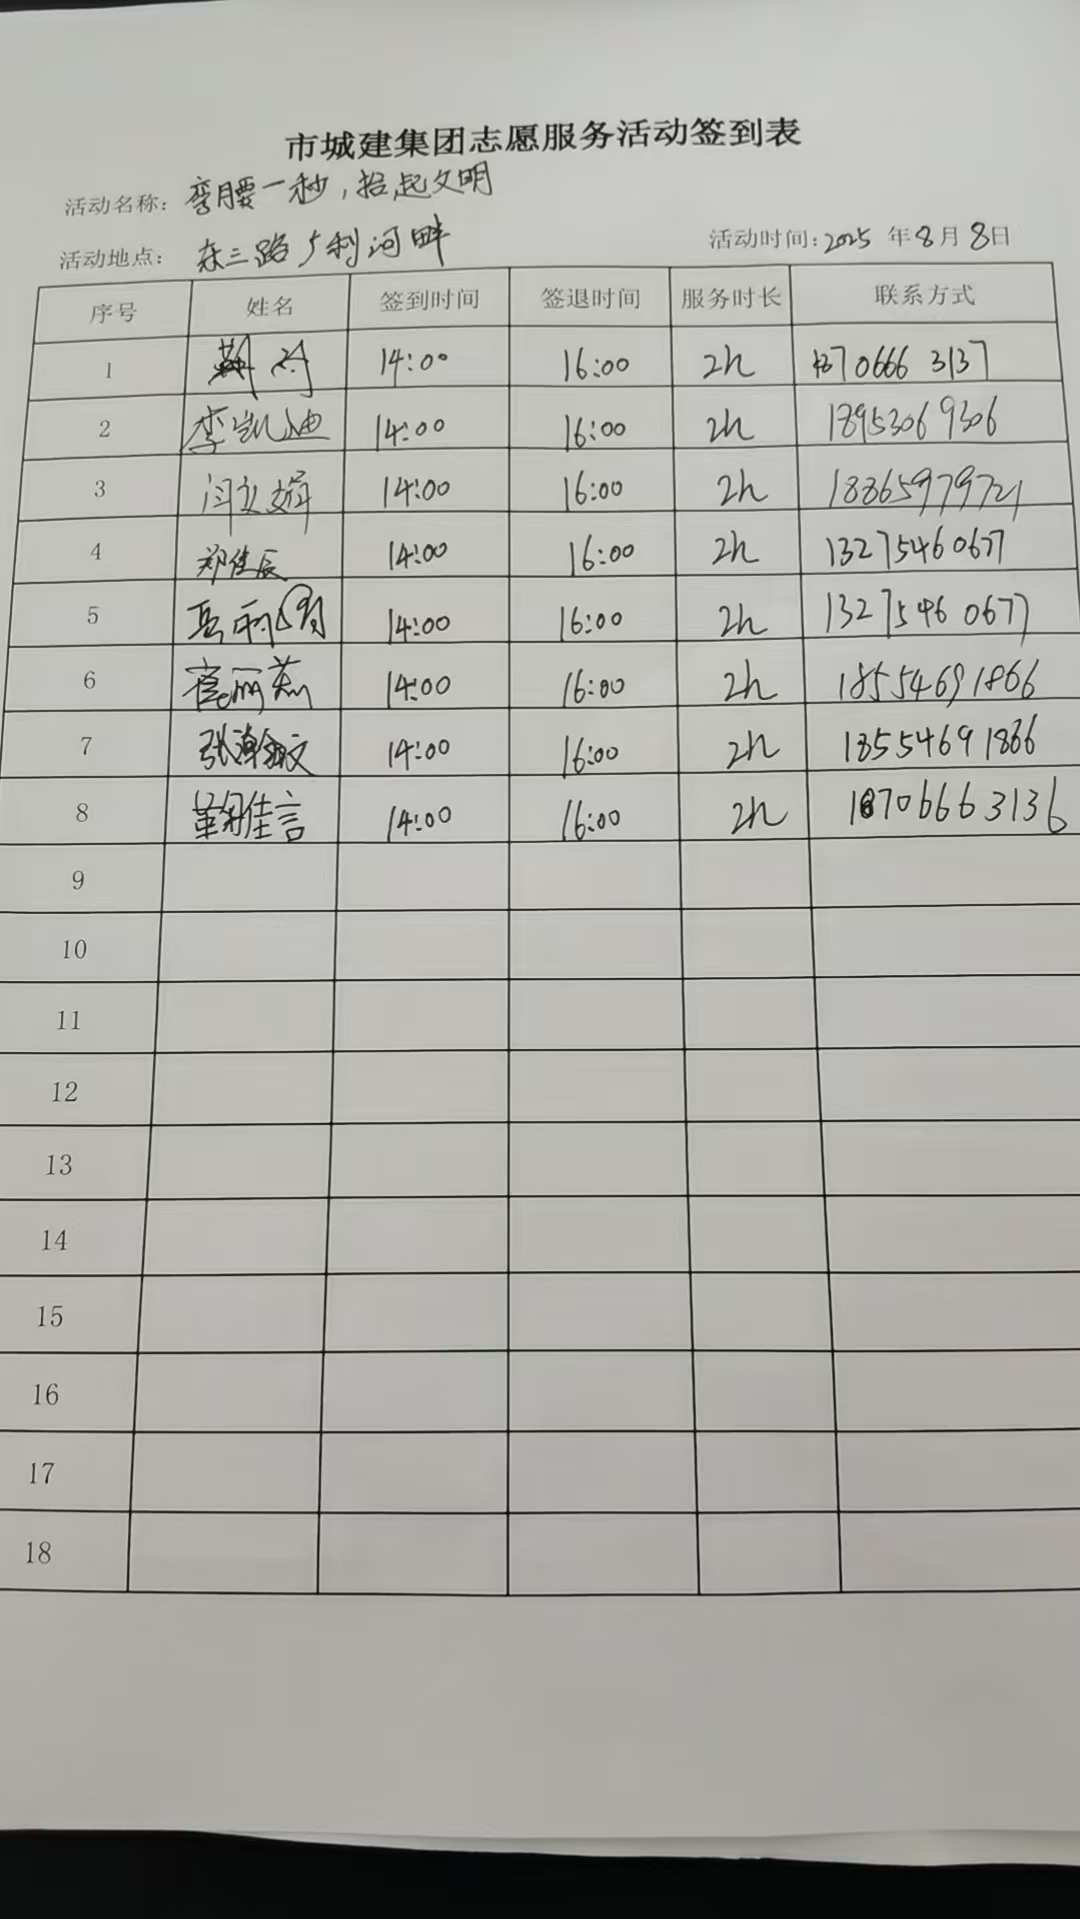 市城建集团志愿服务活动签到表
活动名称: 弯腰一秒，拾起文明
活动地点: 东三路广利河畔 活动时间: 2025 年 8 月 8 日
序号 姓名 签到时间 签退时间 服务时长 联系方式
1 14:00 16:00 2h 18706663137
2 李凯迪 14:00 16:00 2h 18953069306
3 闫文娟 14:00 16:00 2h 18865979721
4 郑佳辰 14:00 16:00 2h 13275460677
5 14:00 16:00 2h 13275460677
6 崔丽燕 14:00 16:00 2h 18554691866
7 张瀚文 14:00 16:00 2h 18554691866
8 靳雅言 14:00 16:00 2h 18706663136
9
10
11
12
13
14
15
16
17
18